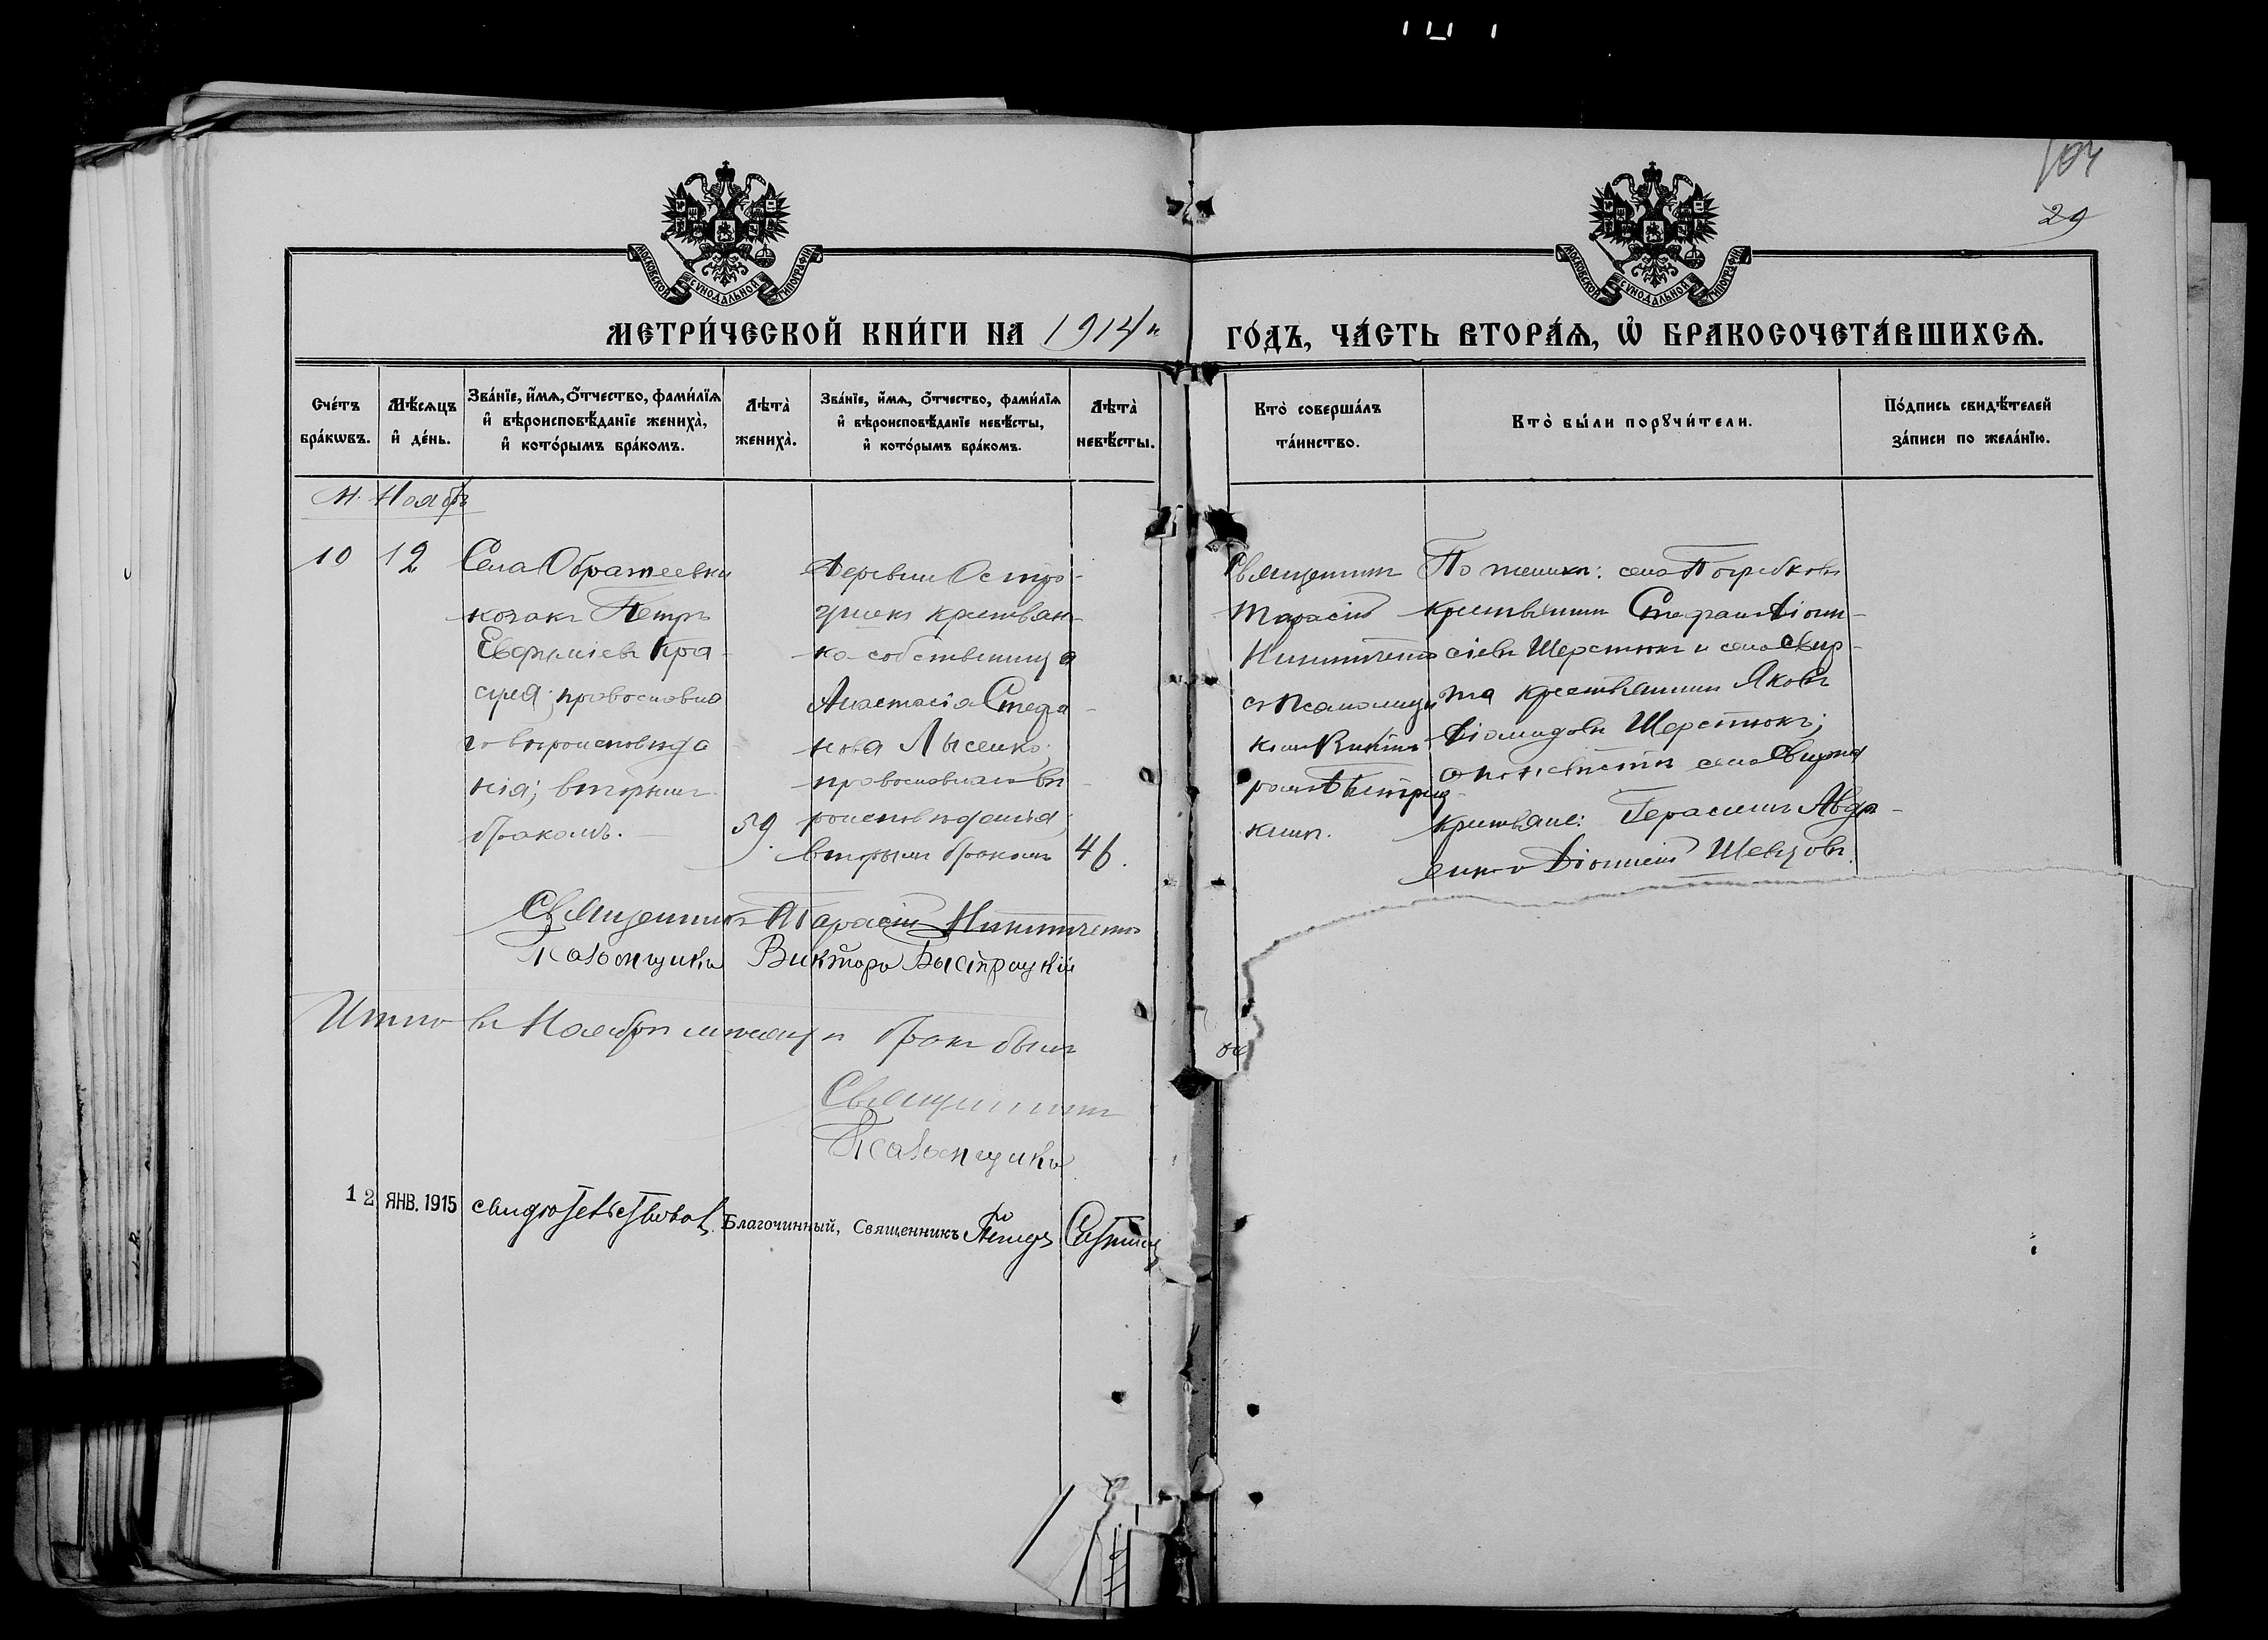 104
29
МОСКОВСКОЙ СѴНОДАЛЬНОЙ ТИПОГРАФІИ
МОСКОВСКОЙ СѴНОДАЛЬНОЙ ТИПОГРАФІИ
МЕТРИ́ЧЕСКОЙ КНИ́ГИ НА 1914й ГО́ДЪ, ЧА́СТЬ ВТОРА́Ѧ, Ѽ БРАКОСОЧЕТА́ВШИХСѦ.
Сче́тъ бра́кѡвъ.
Мѣ́сѧцъ и҆ де́нь.
Зва́нїе, и҆́мѧ, ѻ҆́тчество, фами́лїѧ и҆ вѣроисповѣ́данїе жениха̀, и҆ кото́рымъ бра́комъ.
Лѣта̀ жениха̀.
Зва́нїе, и҆́мѧ, ѻ҆́тчество, фами́лїѧ и҆ вѣроисповѣ́данїе невѣ́сты, и҆ кото́рымъ бра́комъ.
Лѣта̀ невѣ́сты.
Кто̀ соверша́лъ та́инство.
Кто̀ бы́ли порꙋчи́тели.
По́дпись свидѣ́телей за́писи по жела́нїю.
М. Ноябрь
10
12
Села Ображеевки
козакъ Петръ
Евфиміевъ Кра-
суля; православна
го вѣроисповѣда
нія; вторымъ
бракомъ.
59.
Деревни Остро-
крестьян-
ка собственница
Анастасія Стефа-
нова Лысенко,
православнаго вѣ-
роисповѣданія;
вторымъ бракомъ
46.
Священникъ
Тарасій
Никитченко
съ псаломщи
комъ Викто-
ромъ Быстриц-
кимъ.
По женихѣ: села Погребковъ
крестьянинъ Стефанъ Діони-
сіевъ Шерстюкъ и села Свир-
жа крестьянинъ Яковъ
Діомидовъ Шерстюкъ;
а по невѣстѣ села Свиржа
крестьяне: Герасимъ Авдѣ-
енко и Діонисій Шевцовъ.
Священникъ Тарасій Никитченко
Псаломщикъ Викторъ Быстрицкій
Итого въ Ноябрѣ мѣсяцѣ 1 бракъ былъ
Священникъ
Псаломщикъ
12 ЯНВ. 1915 свидѣтельствовалъ Благочинный, Священникъ